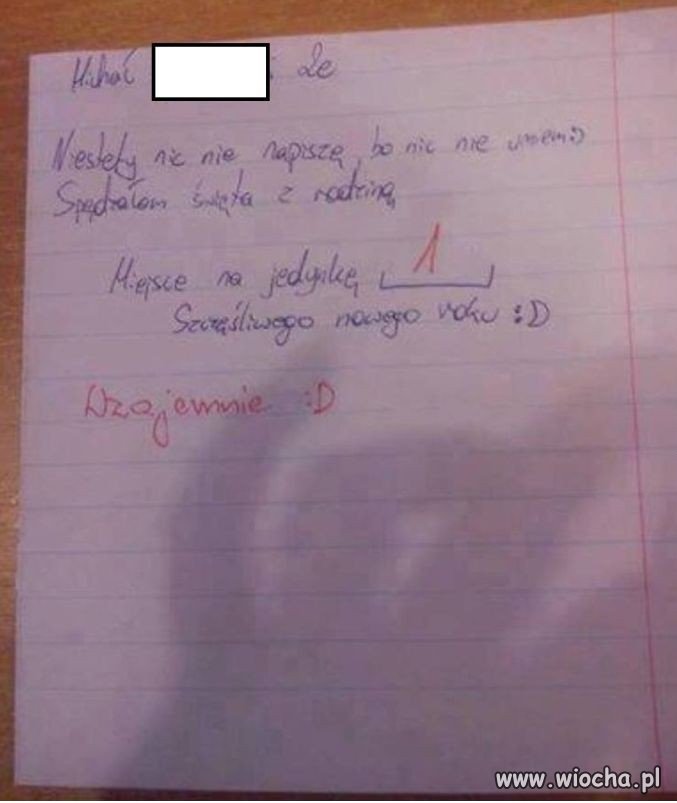 Michał 2e
Niestety nic nie napiszę, bo nic nie umiem:)
Spędzałem święta z rodziną
Miejsce na jedynkę 1
Szczęśliwego nowego roku :D
Wzajemnie :D
www.wiocha.pl